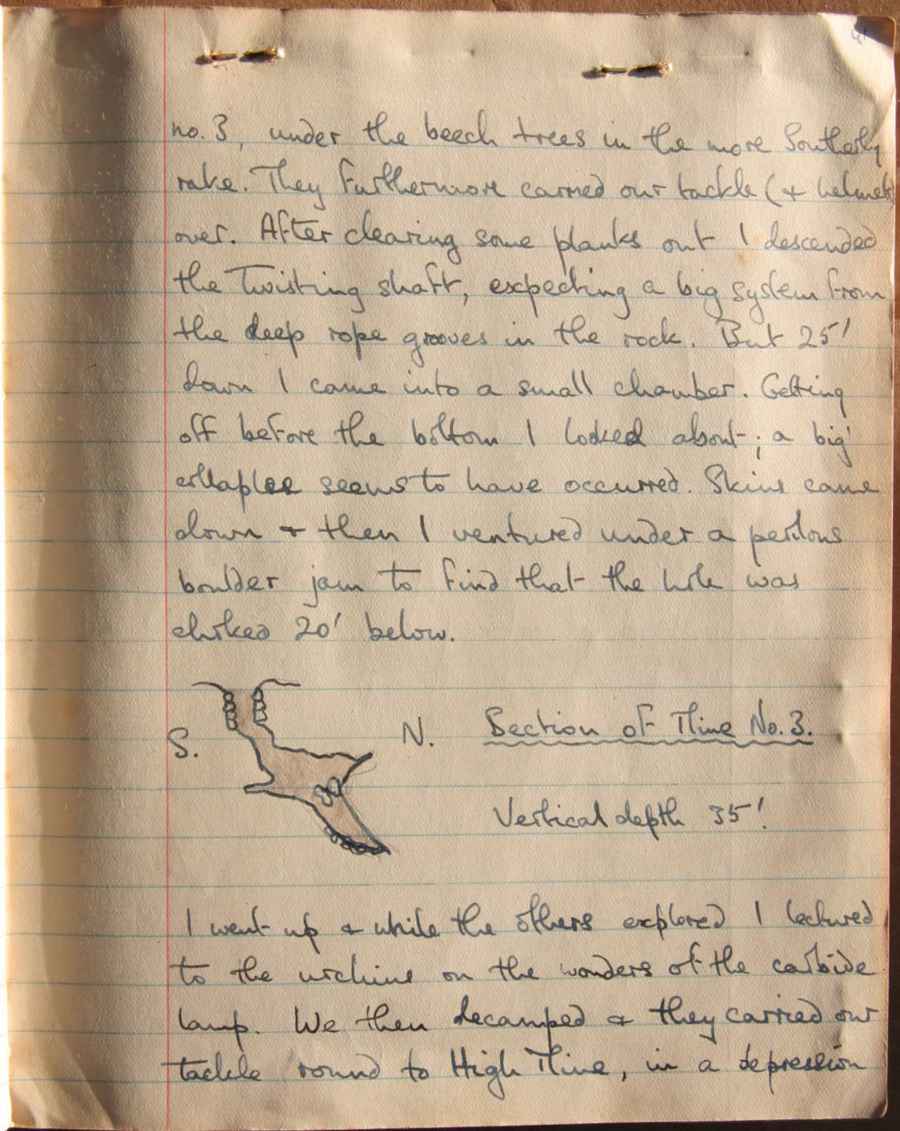 41
no. 3, under the beech trees in the more Southerly
rake. They furthermore carried our tackle (+ helmets
over. After clearing some planks out I descended
the twisting shaft, expecting a big system from
the deep rope grooves in the rock. But 25'
down I came into a small chamber. Getting
off before the bottom I looked about; a big
collapse seems to have occurred. Skins came
down + then I ventured under a perilous
boulder jam to find that the hole was
choked 20' below.
S.
N.
Section of Mine No. 3.
Vertical depth 35'.
I went up + while the others explored I lectured
to the urchins on the wonders of the carbide
lamp. We then decamped + they carried our
tackle round to High Mine, in a depression